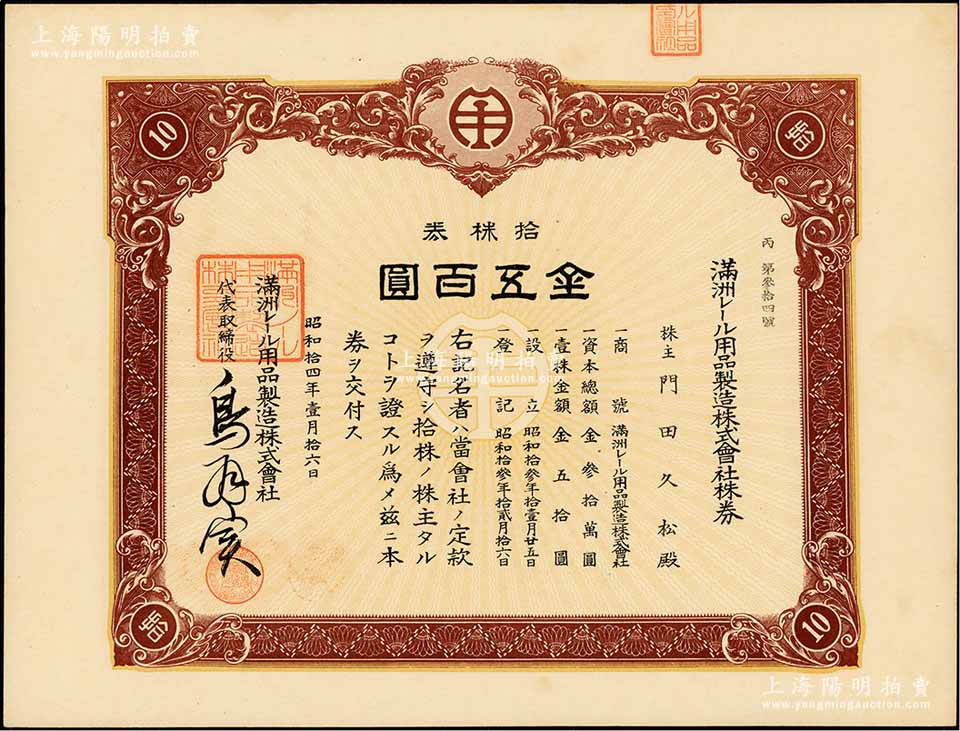 上海陽明拍賣
www.yangmingauction.com
10
拾
拾株券
金五百圓
丙 第參拾四號
滿洲レール用品製造株式會社株券
株主 門田久松殿
一商號 滿洲レール用品製造株式會社
一資本總額 金參拾萬圓
一壹株金額 金五拾圓
一設立 昭和拾參年拾壹月廿五日
一登記 昭和拾參年拾貳月拾六日
右記名者ハ當會社ノ定款
ヲ遵守シ拾株ノ株主タル
コトヲ證スル爲メ茲ニ本
券ヲ交付ス
昭和拾四年壹月拾六日
滿洲レール用品製造株式會社
代表取締役
拾
10
上海陽明拍賣
www.yangmingauction.com
上海陽明拍賣
www.yangmingauction.com